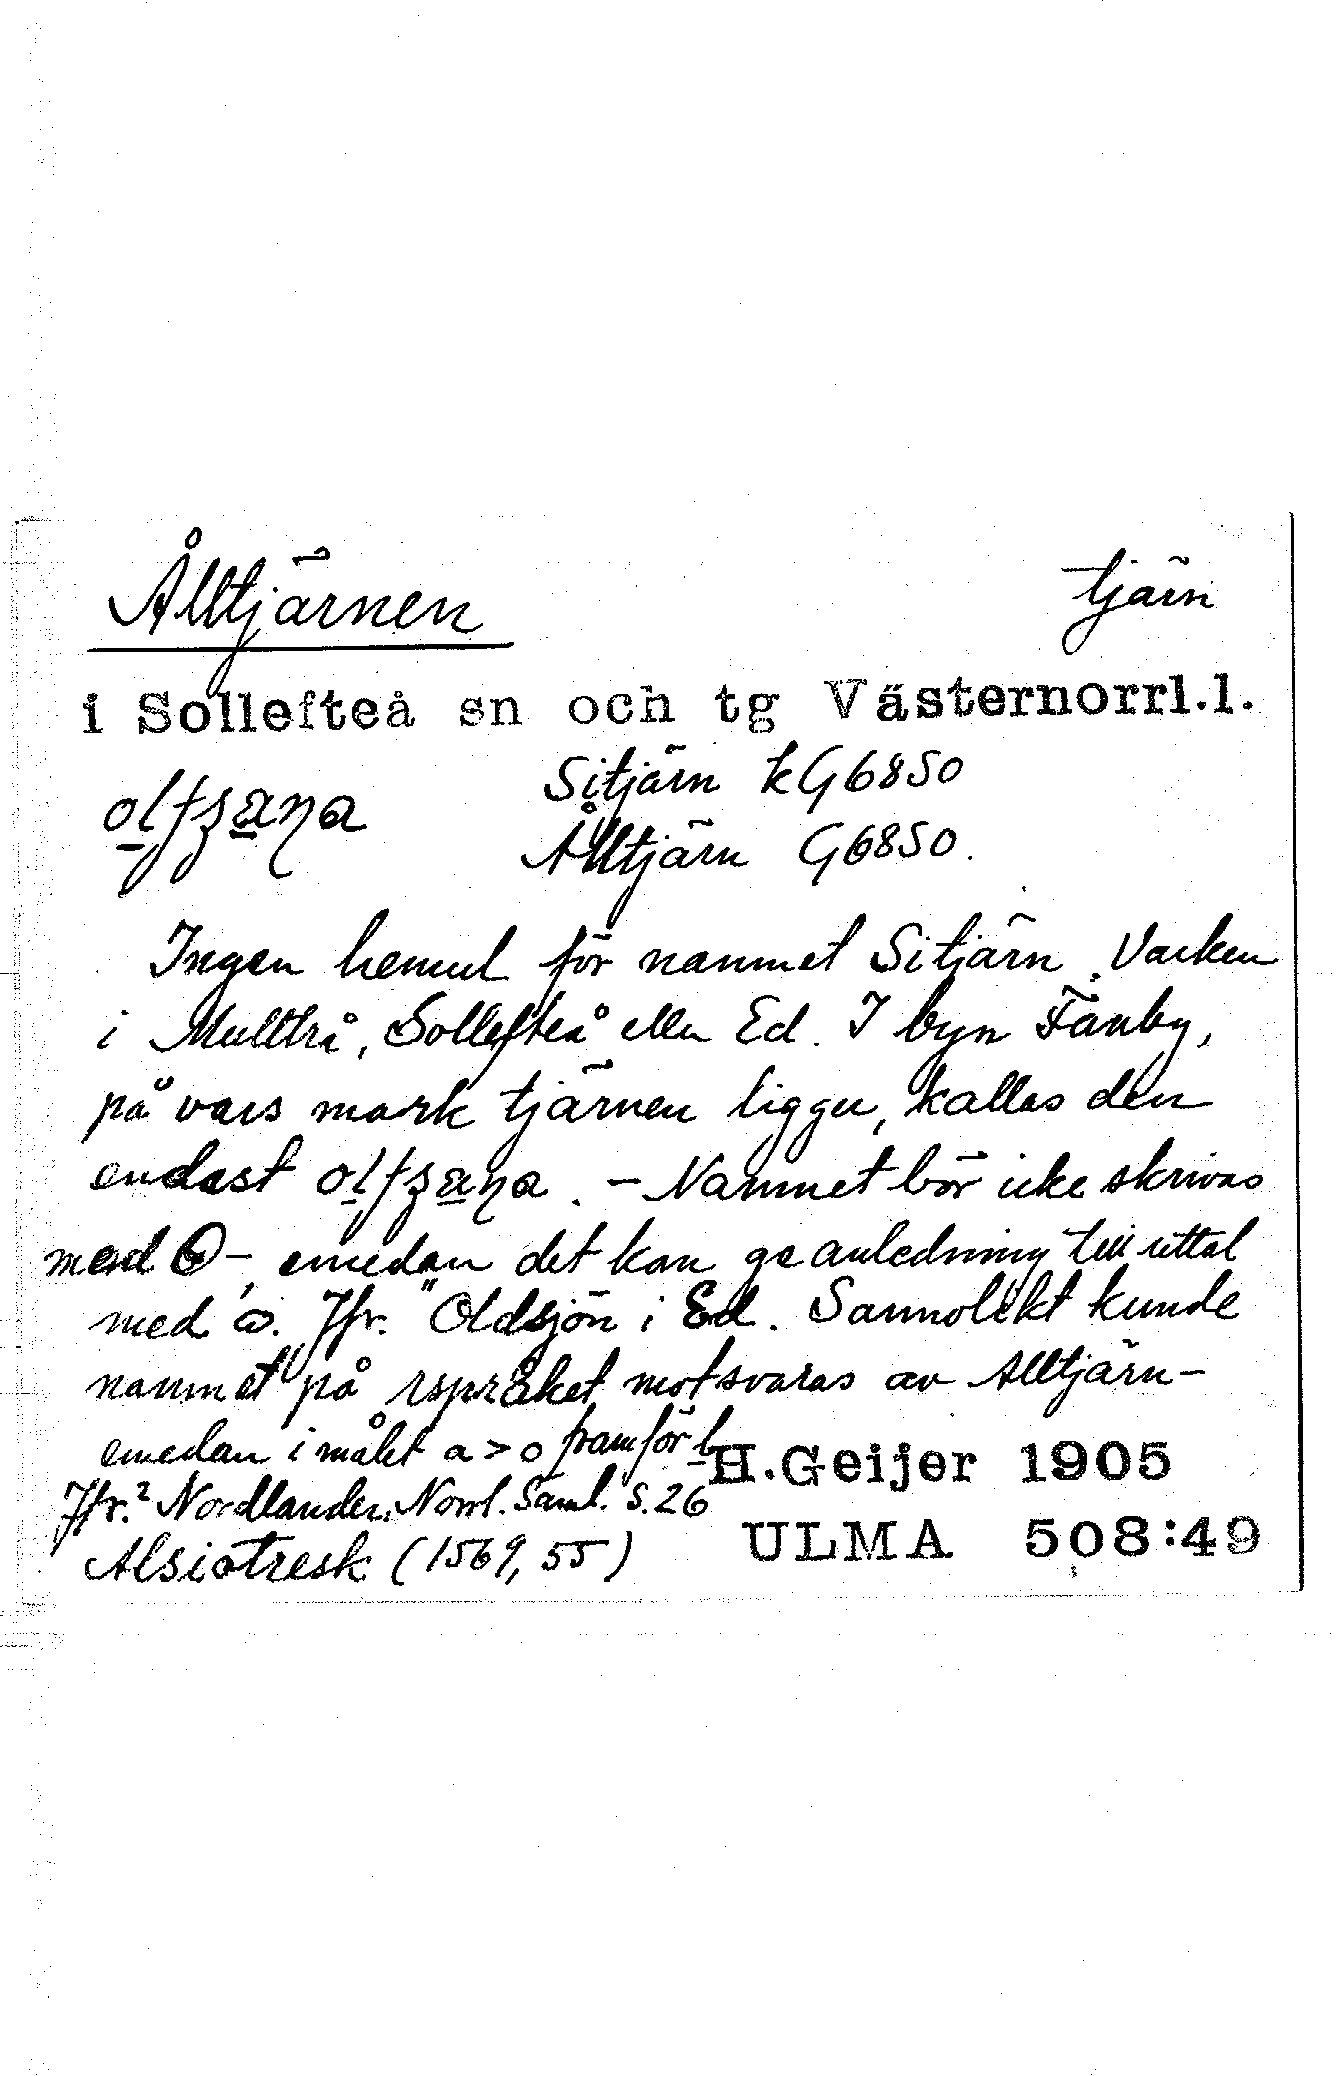 Ålltjärnen tjärn
i Sollefteå sn och tg Västernorrl.l.
Sitjärn kG6850
Ålltjärn G6850.
Ingen hemul för namnet Sitjärn. Varken
i Multrå, Sollefteå eller Ed. I byn Fanby,
på vars mark tjärnen ligger, kallas den
endast . – Namnet bör icke skrivas
med O–, emedan det kan ge anledning till uttal
med ω. Jfr. "Oldsjön i Ed. Sannolikt kunde
namnet på rspråket motsvaras av Alltjärn–
emedan i målet a > o framför l
H.Geijer 1905
Jfr.² Nordlander, Norrl. Saml. S. 26
ULMA 508:49
Alsiotresk (1569, 55)